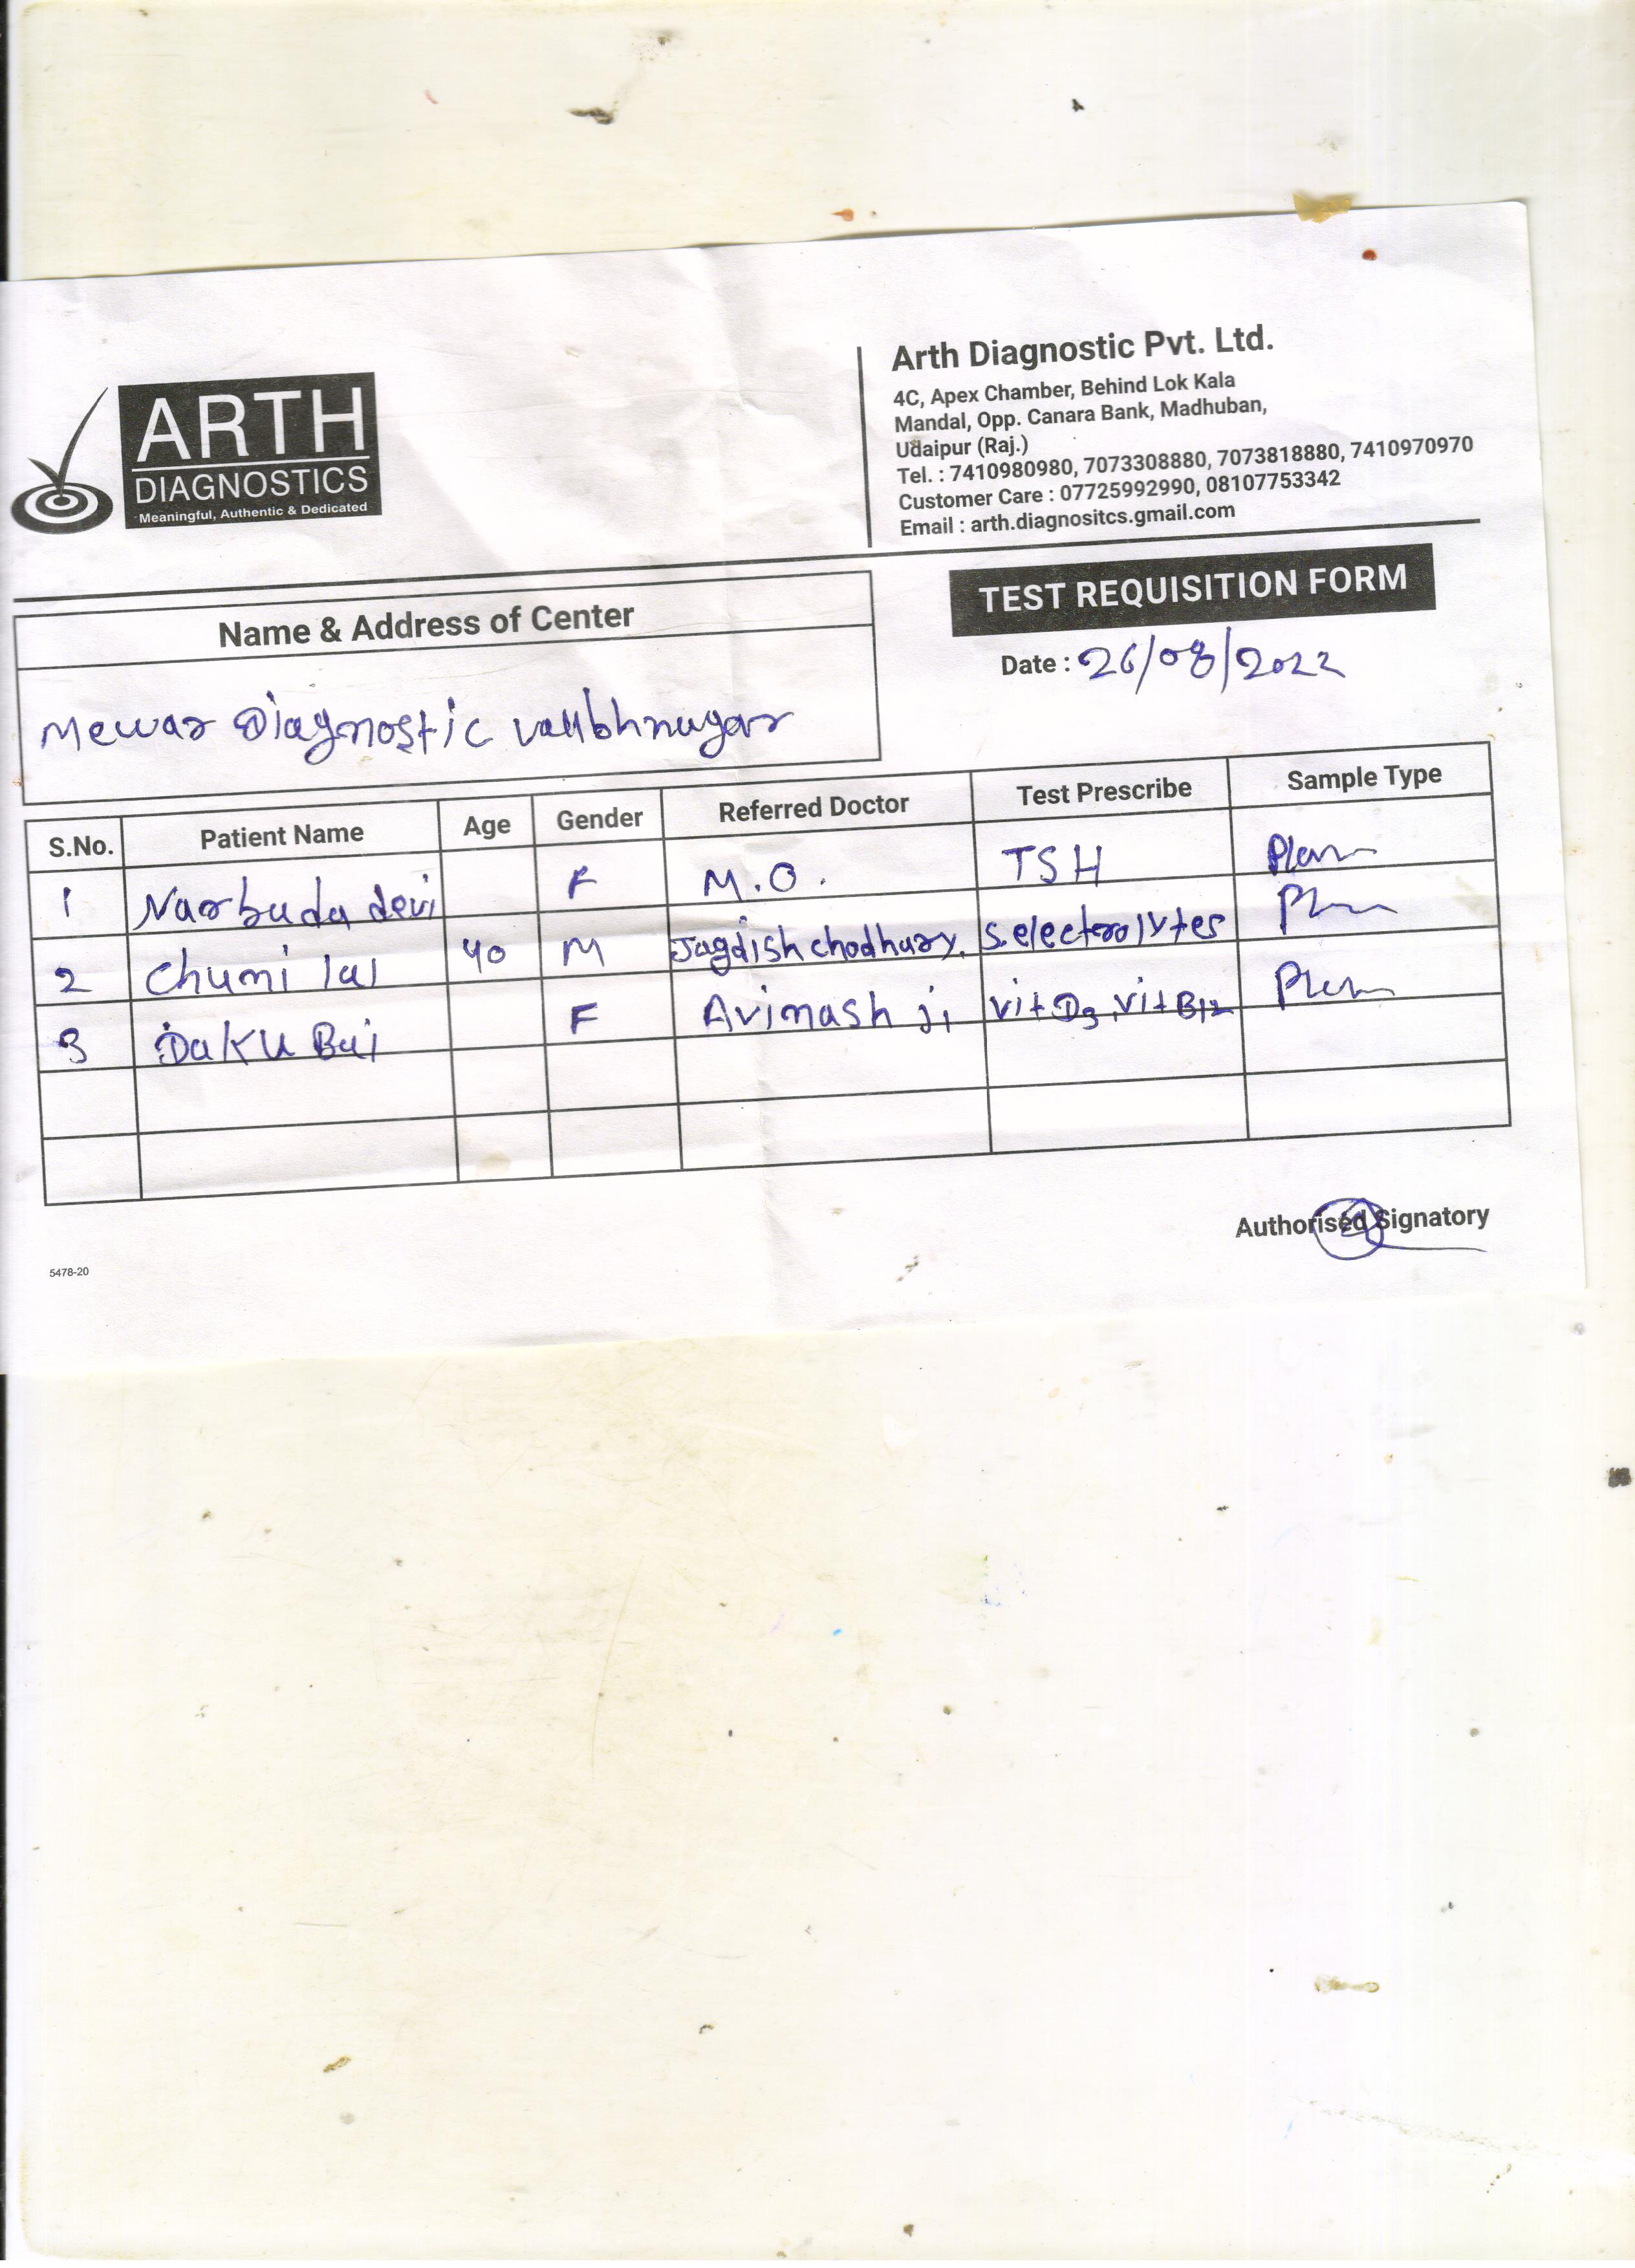 ARTH
DIAGNOSTICS
Meaningful, Authentic & Dedicated
Arth Diagnostic Pvt. Ltd.
4C, Apex Chamber, Behind Lok Kala
Mandal, Opp. Canara Bank, Madhuban,
Udaipur (Raj.)
Tel. : 7410980980, 7073308880, 7073818880, 7410970970
Customer Care : 07725992990, 08107753342
Email : arth.diagnositcs.gmail.com
Name & Address of Center
Mewar Diagnostic vallbhnagar
TEST REQUISITION FORM
Date : 26/08/2022
S.No. Patient Name Age Gender Referred Doctor Test Prescribe Sample Type
1 Narbuda devi F M.O. TSH Plain
2 Chumi lal 40 M Jagdish chodhary. S.electrolytes Plain
3 Daku Bai F Avinash ji Vit D3, Vit B12 Plain
Authorised Signatory
5478-20